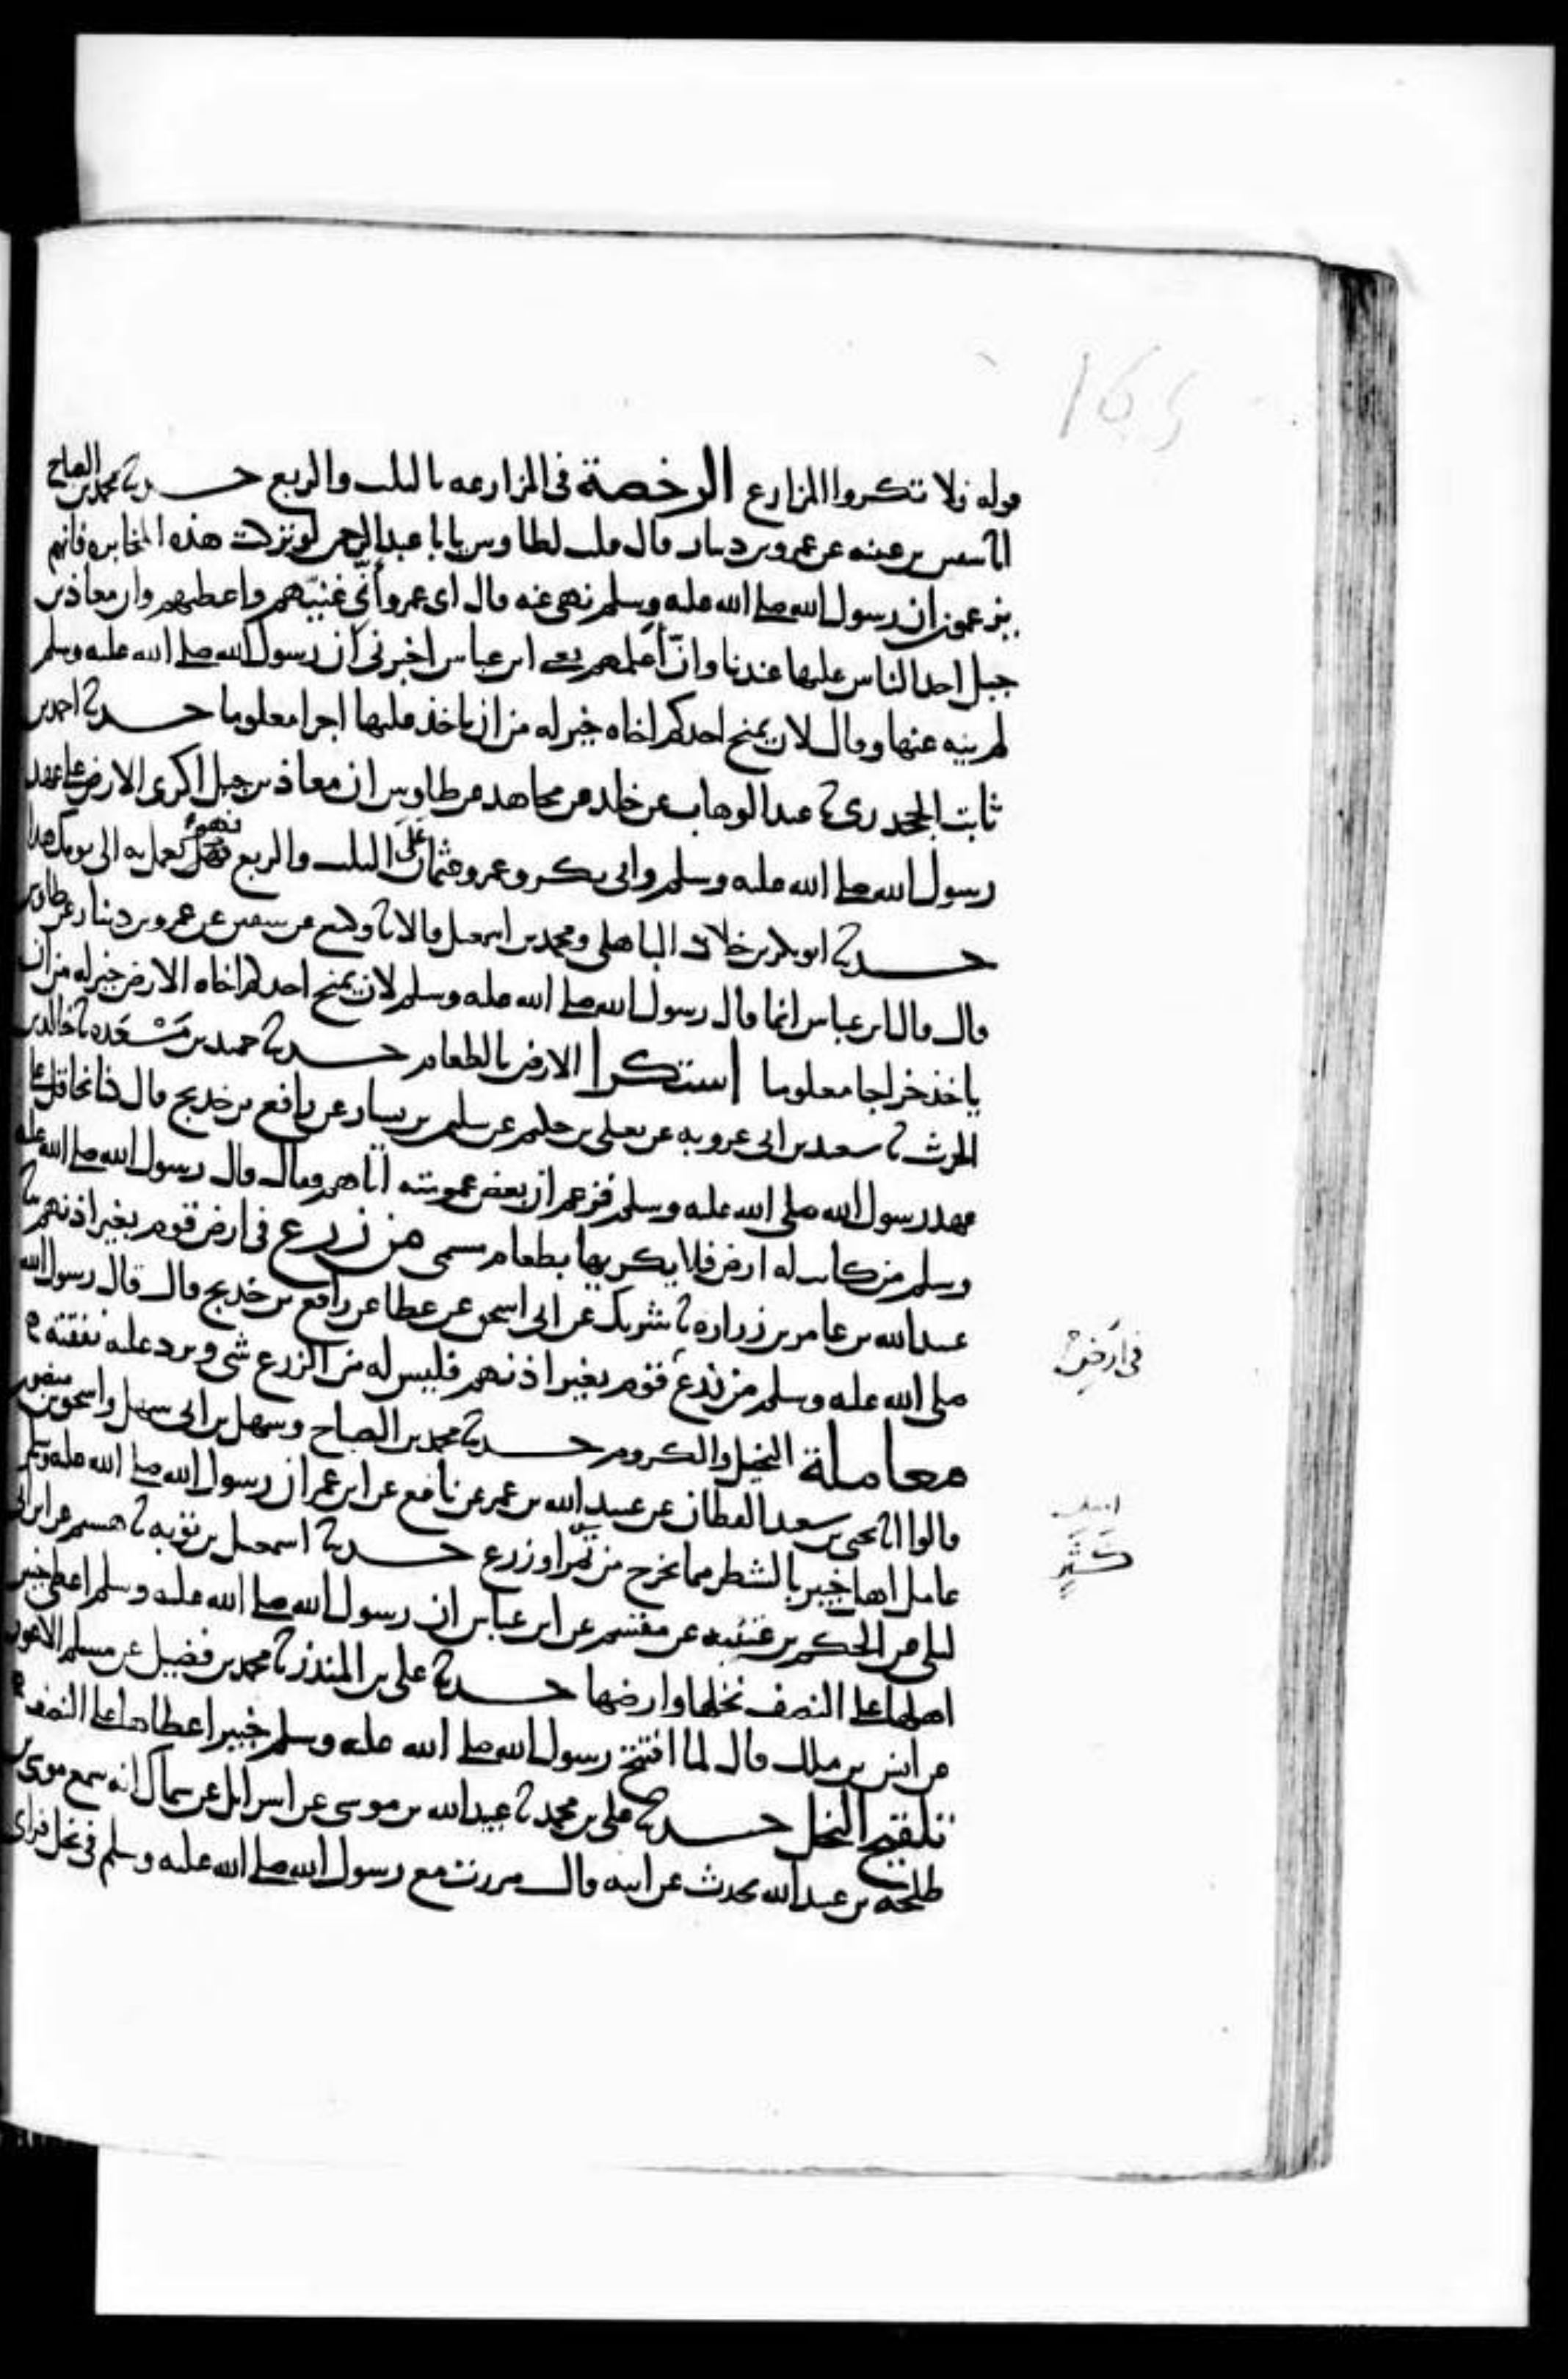 قوله فلا تكروا المزارع الرخصة في المزارعه بالثلث والربع حدثنا محمد بن الصباح
انا سفين بن عيينه عن عمرو بن دينار قال قلت لطاوس يابا عبد الرحمن لو تركت هذه المخابره فانهم
يزعمون ان رسول الله صلى الله عليه وسلم نهى عنه قال اى عمرو اني اعينهم واعطيهم وان معاذ بن
جبل اخذ الناس عليها عندنا وان اعلمهم يعني ابن عباس اخبرني ان رسول الله صلى الله عليه وسلم
لم ينه عنها وقال لان يمنح احدكم اخاه خير له من ان ياخذ عليها اجرا معلوما حدثنا احمد بن
ثابت الجحدري ثنا عبد الوهاب عن خلد عن مجاهد عن طاوس ان معاذ بن جبل اكرى الارض على عهد
رسول الله صلى الله عليه وسلم وابي بكر وعمر وعثمان على الثلث والربع فهو يعمل به الى يومك هذا
حدثنا ابو بكر بن خلاد الباهلي ومحمد بن اسمعيل قالا ثنا وكيع عن سفين عن عمرو بن دينار عن طاوس
قال قال ابن عباس انما قال رسول الله صلى الله عليه وسلم لان يمنح احدكم اخاه الارض خير له من ان
ياخذ خراجا معلوما استكرا الارض بالطعام حدثنا حميد بن مسعده ثنا خالد بن
الحرث ثنا سعيد بن ابي عروبه عن يعلى بن حكيم عن سليمن بن يسار عن رافع بن خديج قال كنا نحاقل على
عهد رسول الله صلى الله عليه وسلم فزعم ان بعض عمومته اتاهم فقال قال رسول الله صلى الله عليه
وسلم من كانت له ارض فلا يكريها بطعام مسمى من زرع في ارض قوم بغير اذنهم ثنا
عبد الله بن عامر بن زراره ثنا شريك عن ابي اسحق عن عطا عن رافع بن خديج قال قال رسول الله
صلى الله عليه وسلم من زرع قوم بغير اذنهم فليس له من الزرع شي ويرد عليه نفقته
في ارض
معاملة النخيل والكروم حدثنا محمد بن الصباح وسهل بن ابي سهل واسحق بن منصور
قالوا انا يحيى بن سعيد القطان عن عبيد الله بن عمر عن نافع عن ابن عمر ان رسول الله صلى الله عليه وسلم
عامل اهل خيبر بالشطر مما يخرج من ثمر او زرع حدثنا اسمعيل بن توبه ثنا هشيم عن ابن ابي
ليلى عن الحكم بن عتيبه عن مقسم عن ابن عباس ان رسول الله صلى الله عليه وسلم اعطى خيبر
اهلها على النصف نخلها وارضها حدثنا علي بن المنذر ثنا محمد بن فضيل عن مسلم الاعور
عن انس بن ملك قال لما افتتح رسول الله صلى الله عليه وسلم خيبر اعطاها على النصف
تلقيح النخل حدثنا علي بن محمد ثنا عبيد الله بن موسى عن اسرايل عن سماك انه سمع موسى بن
طلحة بن عبيد الله يحدث عن ابيه قال مررت مع رسول الله صلى الله عليه وسلم في نخل فراى